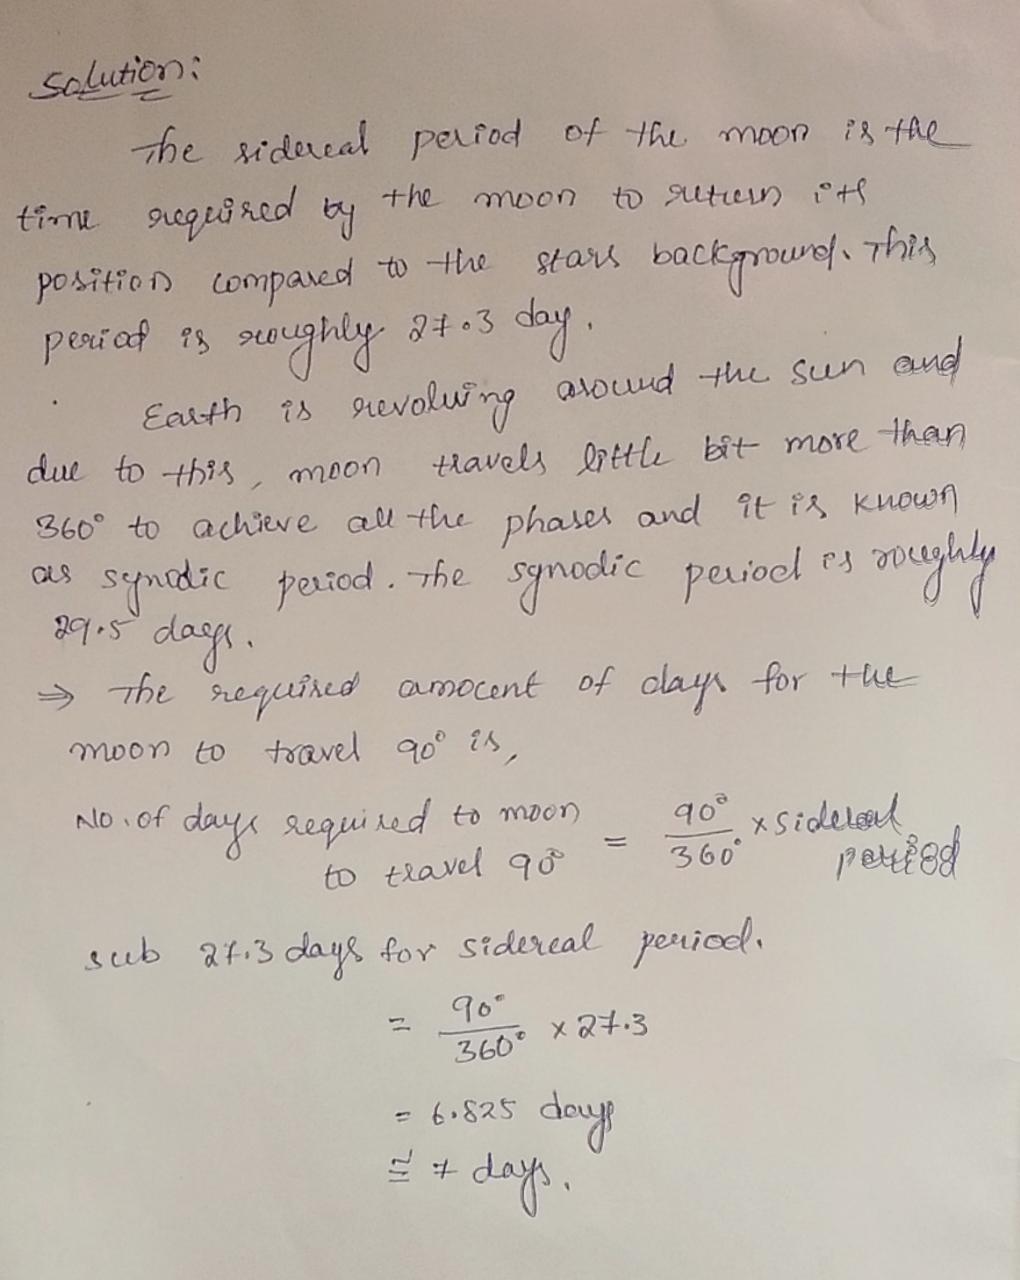 Solution:
The sidereal period of the moon is the
time required by the moon to return its
position compared to the stars background. This
period is roughly 27.3 day.
Earth is revolving around the sun and
due to this, moon travels little bit more than
360° to achieve all the phases and it is known
as synodic period. The synodic period is roughly
29.5 days.
⇒ The required amount of days for the
moon to travel 90° is,
No. of days required to moon
to travel 90° = 90°/360° × sidereal period
sub 27.3 days for sidereal period.
= 90°/360° × 27.3
= 6.825 days
≅ 7 days.